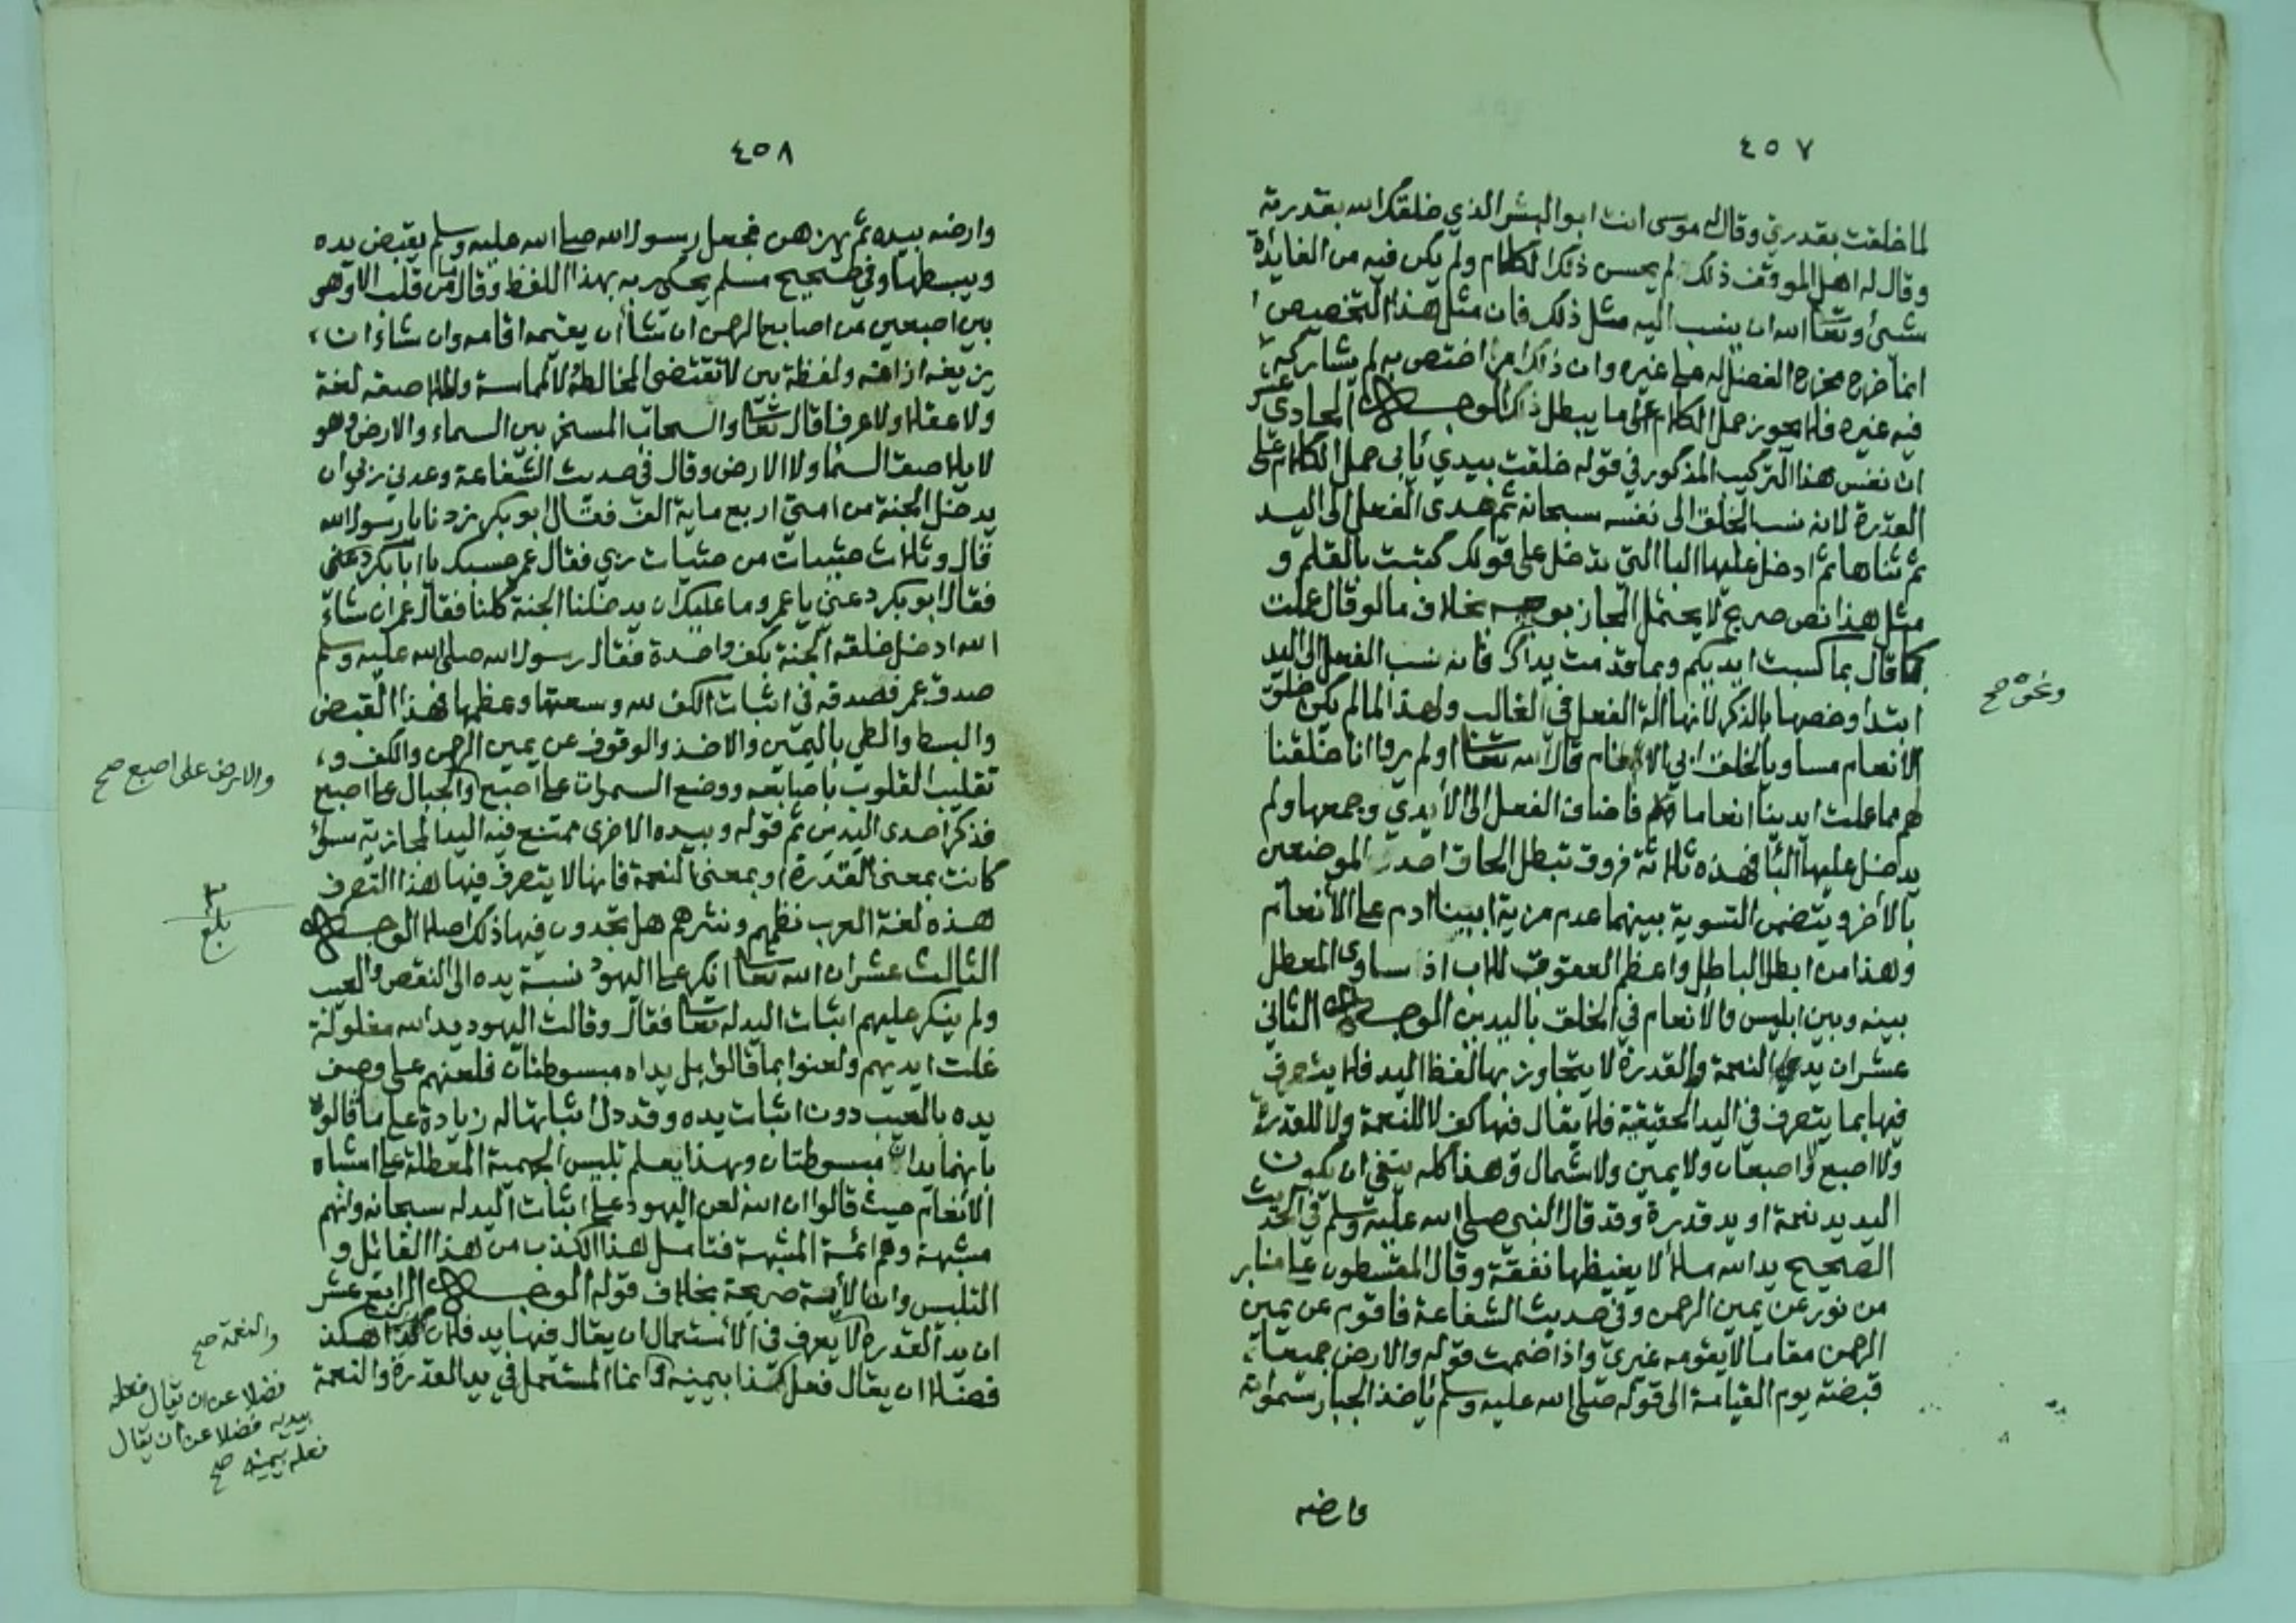 ٤٥٧
لما خلقت بقدرتي وقال له موسى انت ابو البشر الذي خلقك الله بقدرته
وقال له اهل الموقف ذلك لم يحسن ذلك الكلام ولم يكن فيه من الفايدة
شئ وتعا الله ان ينسب اليه مثل ذلك فان مثل هذا التخصيص
انما خرج مخرج الفضل له على غيره وان ذلك امر اختص به لم يشاركه
فيه غيره فلا يجوز حمل الكلام على ما يبطل ذلك الوجه الحادي عشر
ان نفس هذا التركيب المذكور في قوله خلقت بيدي يأبى حمل الكلام على
القدرة لانه نسب الخلق الى نفسه سبحانه ثم عدى الفعل الى اليد
ثم ثناها ثم ادخل عليها البا التي تدخل على قولك كتبت بالقلم و
مثل هذا نص صريح لا يحتمل المجاز بوجه بخلاف ما لو قال عملت
كما قال بما كسبت ايديكم وبما قدمت يداك فانه نسب الفعل الى اليد
ونحوه صح
ابتدا وخصها بالذكر لانها آلة الفعل في الغالب ولهذا لما لم يكن خلق
الأنعام مساويا لخلق ابي الانام قال الله تعا اولم يروا انا خلقنا
لهم مما عملت ايدينا انعاما فاضاف الفعل الى الأيدي وجمعها ولم
يدخل عليها البا فهذه ثلاثة فروق تبطل الحاق احد الموضعين
بالأخر ويتضمن التسوية بينهما عدم مزية ابينا ادم على الأنعام
وهذا من ابطل الباطل واعظم العقوق للاب اذ ساوى المعطل
بينه وبين ابليس والأنعام في الخلق باليدين الوجه الثاني
عشر ان يد النعمة والقدرة لا يتجاوز بها لفظ اليد فلا يتصرف
فيها بما يتصرف في اليد الحقيقية فلا يقال فيها كف لا للنعمة ولا للقدرة
ولا اصبع ولا اصبعان ولا يمين ولا شمال وهذا كله ينفي ان يكون
اليد يد نعمة او يد قدرة وقد قال النبي صلى الله عليه وسلم في الحديث
الصحيح يد الله ملأ لا يغيظها نفقة وقال المقسطون على منابر
من نور عن يمين الرحمن وفي حديث الشفاعة فاقوم عن يمين
الرحمن مقاما لا يقومه غيري واذا ضممت قوله والارض جميعا
قبضته يوم القيامة الى قوله صلى الله عليه وسلم يأخذ الجبار سمواته
وارضه
٤٥٨
وارضه بيده ثم يهزهن فجعل رسول الله صلى الله عليه وسلم يقبض يده
ويبسطها وفي صحيح مسلم يحكي ربه بهذا اللفظ وقال ما من قلب الا وهو
بين اصبعين من اصابع الرحمن ان شأ أن يقيمه اقامه وان شاء ان
يزيغه ازاغه ولفظة بين لا تقتضي المخالطة لا المماسة والملاصقة لغة
ولا عقلا ولا عرفا قال تعا والسحاب المسخر بين السماء والارض وهو
لا يلاصق السما ولا الارض وقال في حديث الشفاعة وعدني ربي ان
يدخل الجنة من امتي اربع ماية الف فقال ابو بكر زدنا يا رسول الله
قال وثلاث حثيات من حثيات ربي فقال عمر حسبك يا ابا بكر دعني
فقال ابو بكر دعني يا عمر وما عليك ان يدخلنا الجنة كلنا فقال عمر ان شاء
الله ادخل خلقه الجنة بكف واحدة فقال رسول الله صلى الله عليه وسلم
صدق عمر فصدقه في اثبات الكف لله وسعتها وعظمها فهذا القبض
والبسط والطي باليمين والاخذ والوقوف عن يمين الرحمن والكف و
تقليب القلوب باصابعه ووضع السموات على اصبع والجبال على اصبع
والارض على اصبع صح
فذكر احدى اليدين ثم قوله وبيده الاخرى ممتنع فيه اليد المجازية سوأ
كانت بمعنى القدرة او بمعنى النعمة فانها لا يتصرف فيها هذا التصرف
هذه لغة العرب نظمهم ونثرهم هل تجدون فيها ذلك اصلا الوجه
بلغ
الثالث عشر ان الله تعا انكر على اليهود نسبة يده الى النقص والعيب
ولم ينكر عليهم اثبات اليد له تعا فقال وقالت اليهود يد الله مغلولة
غلت ايديهم ولعنوا بما قالوا بل يداه مبسوطتان فلعنهم على وصف
يده بالعيب دون اثبات يده وقدر دل اثباتها له زيادة على ما قالوه
بانهما يدان مبسوطتان وبهذا يعلم تلبيس الجهمية المعطلة على اشباه
الأنعام حيث قالوا ان الله لعن اليهود على اثبات اليد له سبحانه وانهم
مشبهة وهم ائمة المشبهة فتامل هذا الكذب من هذا القائل و
التلبيس وان الأية صريحة بخلاف قوله الوجه الرابع عشر
ان يد القدرة لا يعرف في الأستعمال ان يقال فيها يد فلان كذا هكذ
والنعمة صح
فضلا ان يقال فعل كذا بيمينه وانما المستعمل في يد القدرة والنعمة
فضلا عن ان يقال فعله
بيديه فضلا عن ان يقال
فعله بيمينه صح